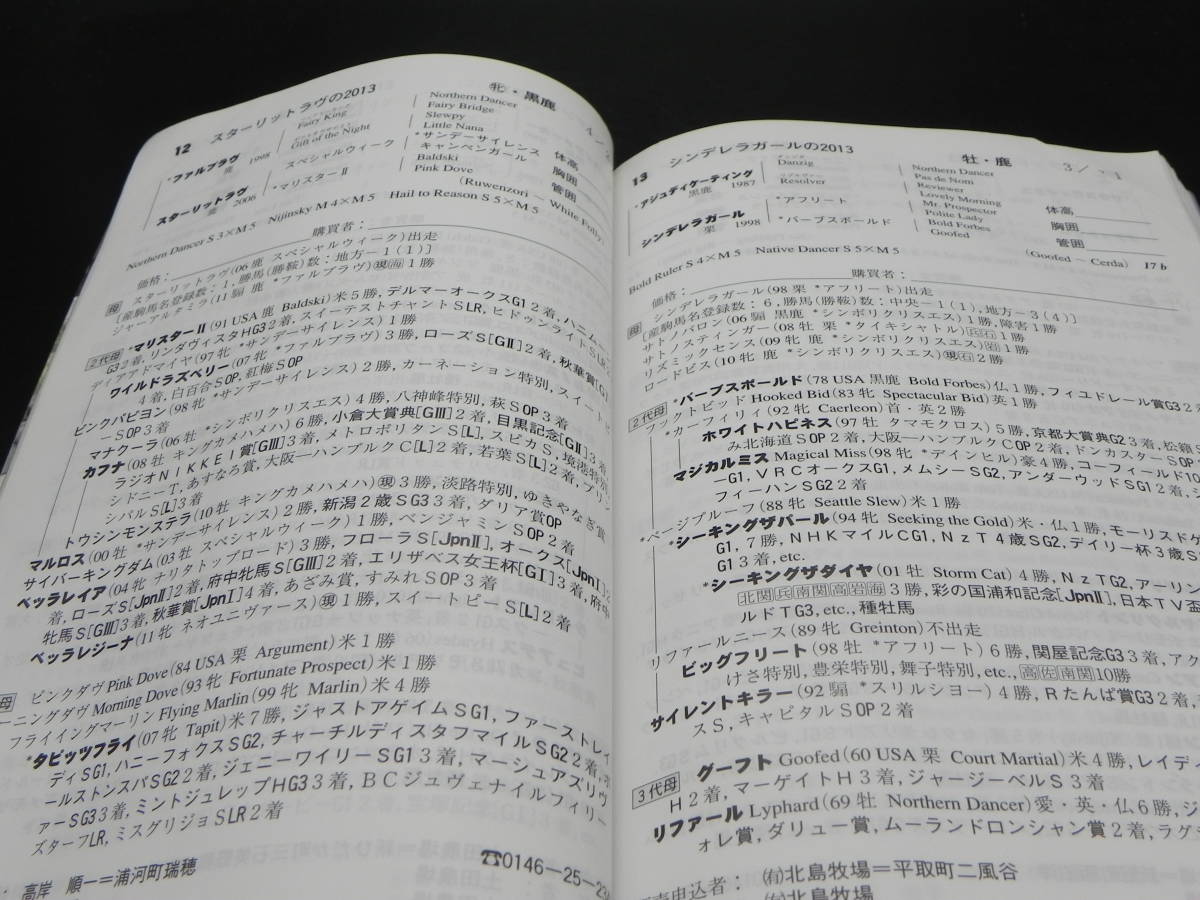 12 スターリットラヴの2013 牝・黒鹿
*ファルブラヴ
鹿 1998
Fairy King
Gift of the Night
Northern Dancer
Fairy Bridge
Slewpy
Little Nana
スターリットラヴ
鹿 2006
スペシャルウィーク
*マリスターⅡ
*サンデーサイレンス
キャンペンガール
Baldski
Pink Dove
体高
胸囲
管囲
(Ruwenzori – White Folly)
Northern Dancer S3×M5 Nijinsky M4×M5 Hail to Reason S5×M5
価格: 購買者:
母 スターリットラヴ(06 鹿 スペシャルウィーク)出走
[産駒馬名登録数:1,勝馬(勝鞍)数:地方–1(1)]
ジャーアルタミラ(11 騸 鹿 *ファルブラヴ)現海1勝
2代母 *マリスターⅡ(91 USA 鹿 Baldski)米5勝,デルマーオークスG1 2着,ハニム
G3 2着,リンダヴィスタHG3 2着,スイーテストチャントSLR,ヒドゥンライトSLR
ディアアドマイヤ(97牝 *サンデーサイレンス)1勝
ワイルドラズベリー(07牝 *ファルブラヴ)3勝,ローズS[GⅡ]2着,秋華賞[GⅠ]
4着,白百合SOP,紅梅SOP
ピンクパピヨン(98牝 *サンデーサイレンス)2勝,カーネーション特別,スイート
–SOP3着
マナクーラ(06牡 *シンボリクリスエス)4勝,八神峰特別,萩SOP3着
カフナ(08牡 キングカメハメハ)6勝,小倉大賞典[GⅢ]2着,目黒記念[GⅡ]3着,
ラジオNIKKEI賞[GⅢ]3着,メトロポリタンS[L],スピカS,境港特別,
シドニーT,あすなろ賞,大阪—ハンブルクC[L]2着,若葉S[L]2着,プリン
シパルS[L]3着
トウシンモンステラ(10牡 キングカメハメハ)現3勝,淡路特別,ゆきやなぎ賞
マルロス(00牡 *サンデーサイレンス)2勝,新潟2歳SG3 3着,ダリア賞OP
サイバーキングダム(03牡 スペシャルウィーク)1勝,ベンジャミンSOP2着
ベッラレイア(04牝 ナリタトップロード)3勝,フローラS[JpnⅡ],オークス[JpnⅠ]2
着,ローズS[JpnⅡ]2着,府中牝馬S[GⅢ]2着,エリザベス女王杯[GⅠ]3着,府中
牝馬S[GⅢ]3着,秋華賞[JpnⅠ]4着,あざみ賞,すみれSOP3着
ベッラレジーナ(11牝 ネオユニヴァース)現1勝,スイートピーS[L]2着
母 ピンクダヴ Pink Dove(84 USA 栗 Argument)米1勝
ーニングダヴ Morning Dove(93牝 Fortunate Prospect)米1勝
フライイングマーリン Flying Marlin(99牝 Marlin)米4勝
*タピッツフライ(07牝 Tapit)米7勝,ジャストアゲイムSG1,ファーストレイ
ディSG1,ハニーフォクスSG2,チャーチルディスタフマイルSG2 2着,オ
ールストンスパSG2 2着,ジェニーワイリーSG1 3着,マーシュアズリヴ
ァーSG3 3着,ミントジュレップHG3 3着,BCジュヴェナイルフィリー
ズターフLR,ミスグリジョSLR2着
☎0146–25–23
: 高岸 順一=浦河町瑞穂
13 シンデレラガールの2013 牡・鹿 3/
*アジュディケーティング
黒鹿 1987
Danzig
Resolver
Northern Dancer
Pas de Nom
Reviewer
Lovely Morning
シンデレラガール
栗 1998
*アフリート
*バーブスボールド
Mr. Prospector
Polite Lady
Bold Forbes
Goofed
体高
胸囲
管囲
(Goofed – Cerda) 17 b
Bold Ruler S4×M5 Native Dancer S5×M5
価格: 購買者:
母 シンデレラガール(98 栗 *アフリート)出走
[産駒馬名登録数:6,勝馬(勝鞍)数:中央–1(1),地方–3(4)]
サトノバロン(06 騸 黒鹿 *シンボリクリスエス)1勝,障害1勝
サトノスティンガー(08 牡 栗 *タイキシャトル)兵石
リズミックセンス(09 牝 鹿 *シンボリクリスエス)岩1勝
ロードビス(10 牝 鹿 *シンボリクリスエス)現石2勝
2代母 *バーブスボールド(78 USA 黒鹿 Bold Forbes)仏1勝,フィユドレール賞G3 2
フックトビッド Hooked Bid(83牝 Spectacular Bid)英1勝
*カーフィリィ(92牝 Caerleon)首・英2勝
ホワイトハピネス(97牡 タマモクロス)5勝,京都大賞典G2 3着,松籟S
み北海道SOP2着,大阪—ハンブルクCOP2着,ドンカスターSOP
マジカルミス Magical Miss(98牝 *デインヒル)豪4勝,コーフィールド10
–G1,VRCオークスG1,メムシーSG2,アンダーウッドSG1 2着,
フィーハンSG2 2着
*ページプルーフ(88牝 Seattle Slew)米1勝
*シーキングザパール(94牝 Seeking the Gold)米・仏1勝,モーリスドゲ
G1,7勝,NHKマイルCG1,NzT4歳SG2,デイリー杯3歳S
G1 3着,etc.
*シーキングザダイヤ(01牡 Storm Cat)4勝,NzTG2,アーリン
北関兵南関高岩海3勝,彩の国浦和記念[JpnⅡ],日本TV盃
ルドTG3,etc.,種牡馬
リファールニース(89牝 Greinton)不出走
ビッグフリート(98牡 *アフリート)6勝,関屋記念G3 3着,アク
けさ特別,豊栄特別,舞子特別,etc.,高佐南関10勝
サイレントキラー(92騸 *スリルショー)4勝,Rたんぱ賞G3 2着,
スS,キャピタルSOP2着
3代母 グーフト Goofed(60 USA 栗 Court Martial)米4勝,レイディ
H2着,マーゲイトH3着,ジャージーベルS3着
リファール Lyphard(69牡 Northern Dancer)愛・英・仏6勝,ジ
ォレ賞,ダリュー賞,ムーランドロンシャン賞2着,ラグ
売申込者: (有)北島牧場=平取町二風谷
(有)北島牧場